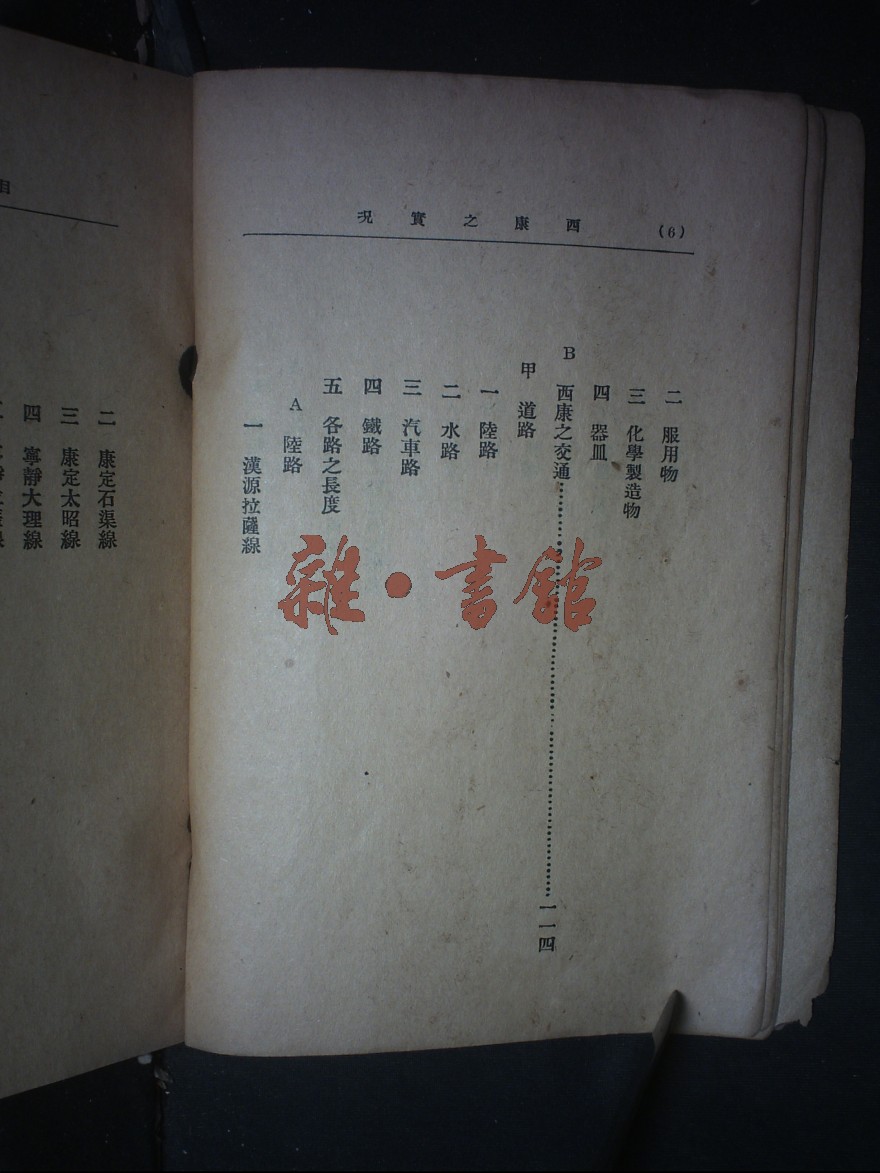 (6) 西康之實況
二 服用物
三 化學製造物
四 器皿
B 西康之交通……一一四
甲 道路
一 陸路
二 水路
三 汽車路
四 鐵路
五 各路之長度
A 陸路
一 漢源拉薩線
雜·書館
目
二 康定石渠線
三 康定太昭線
四 寧靜大理線